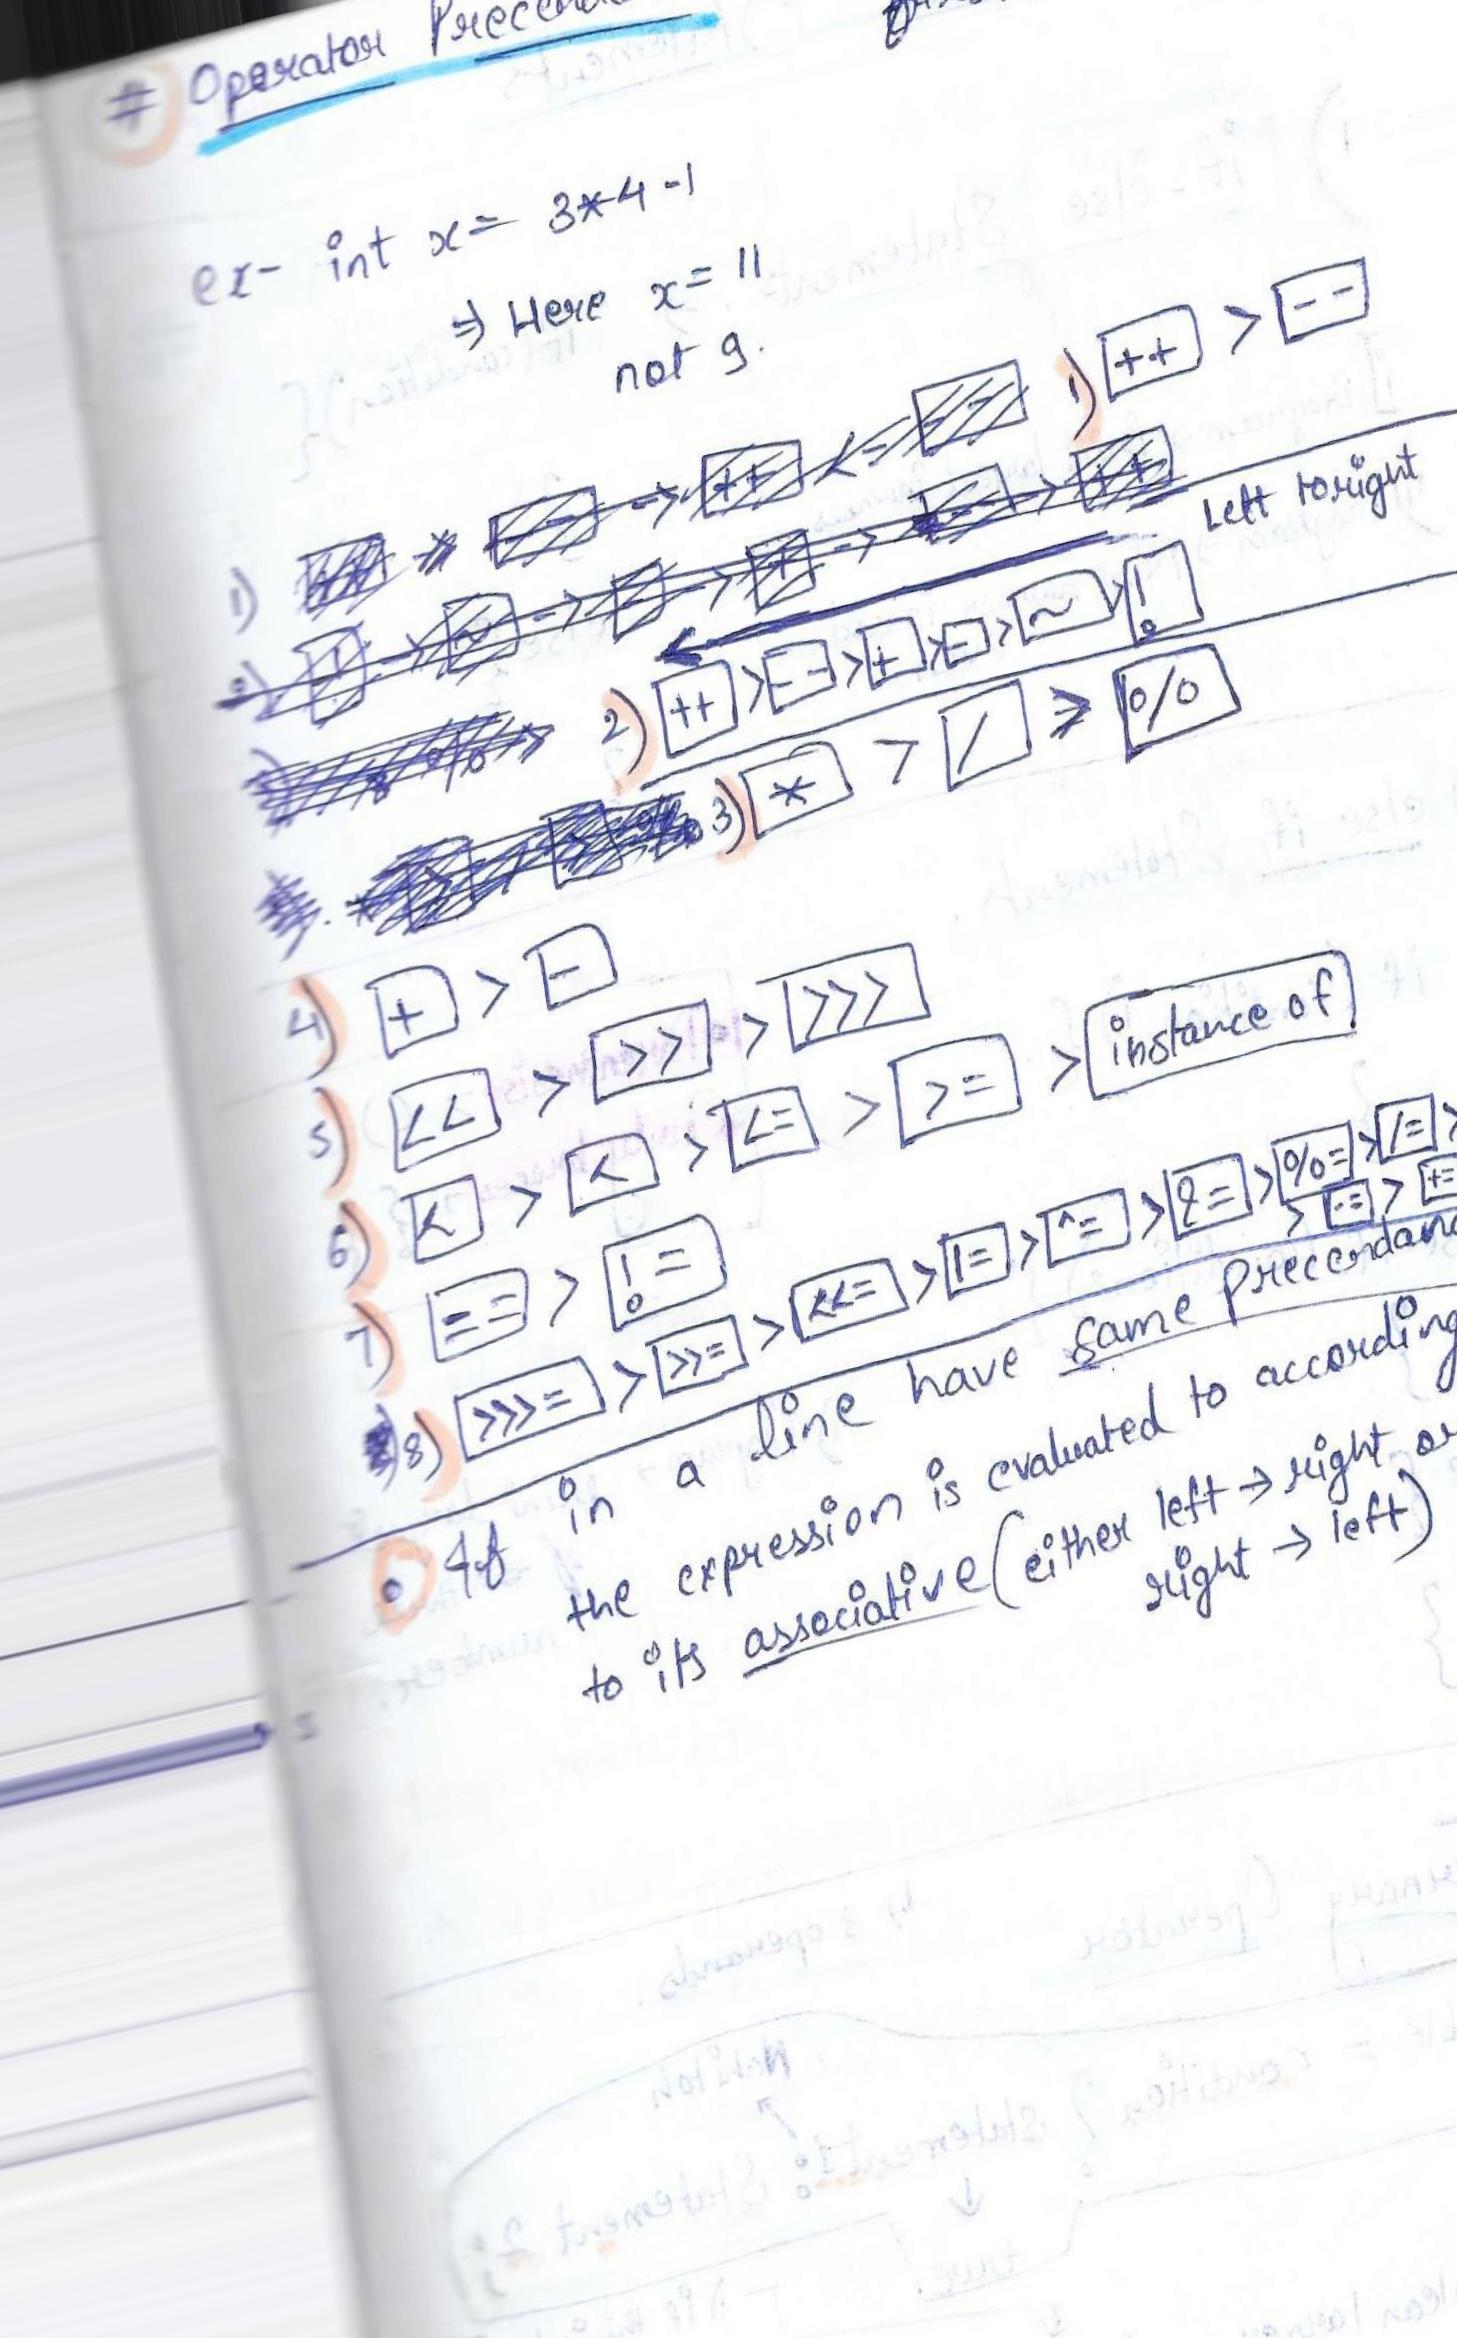 # Operator
ex- int x = 3*4-1
⇒ Here x = 11
not 9.
1) ++ > --
Left to right
2) ++ > -- > + > - > ~ > !
3) * > / > %
4) + > -
5) << > >> > >>>
6) < > < > <= > >= > instance of
7) == > !=
8) >>>= > >>= > <<= > |= > ^= > &= > %= > /= >
> -= > +=
• If in a line have same
the expression is evaluated to according
to its associative (either left → right or
right → left)